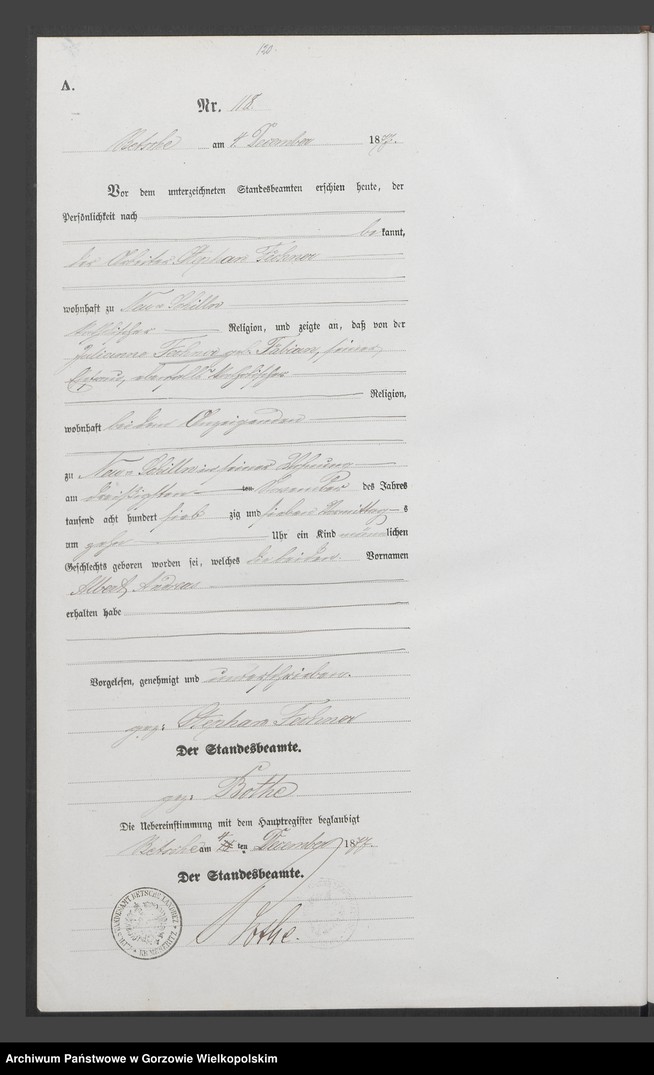 120.
A.
Nr. 118.
Betsche am 4 December 1877.
Vor dem unterzeichneten Standesbeamten erschien heute, der
Persönlichkeit nach
bekannt,
der Arbeiter Stephan
wohnhaft zu Neu-Schilln
katholischer Religion, und zeigte an, daß von der
Julianna geb. Fabian, seiner
Ehefrau, ebenfalls katholischer
Religion,
wohnhaft bei dem Anzeigenden
zu Neu-Schilln in seiner Wohnung
am dreißigsten ten November des Jahres
tausend acht hundert siebzig und sieben Vormittags
um zehn Uhr ein Kind männlichen
Geschlechts geboren worden sei, welches die beiden Vornamen
Albert, Andreas
erhalten habe
Vorgelesen, genehmigt und unterschrieben.
gez: Stephan
Der Standesbeamte.
gez: Bothe
Die Uebereinstimmung mit dem Hauptregister beglaubigt
Betsche am 4 ten December 1877.
Der Standesbeamte.
Bothe.
Archiwum Państwowe w Gorzowie Wielkopolskim